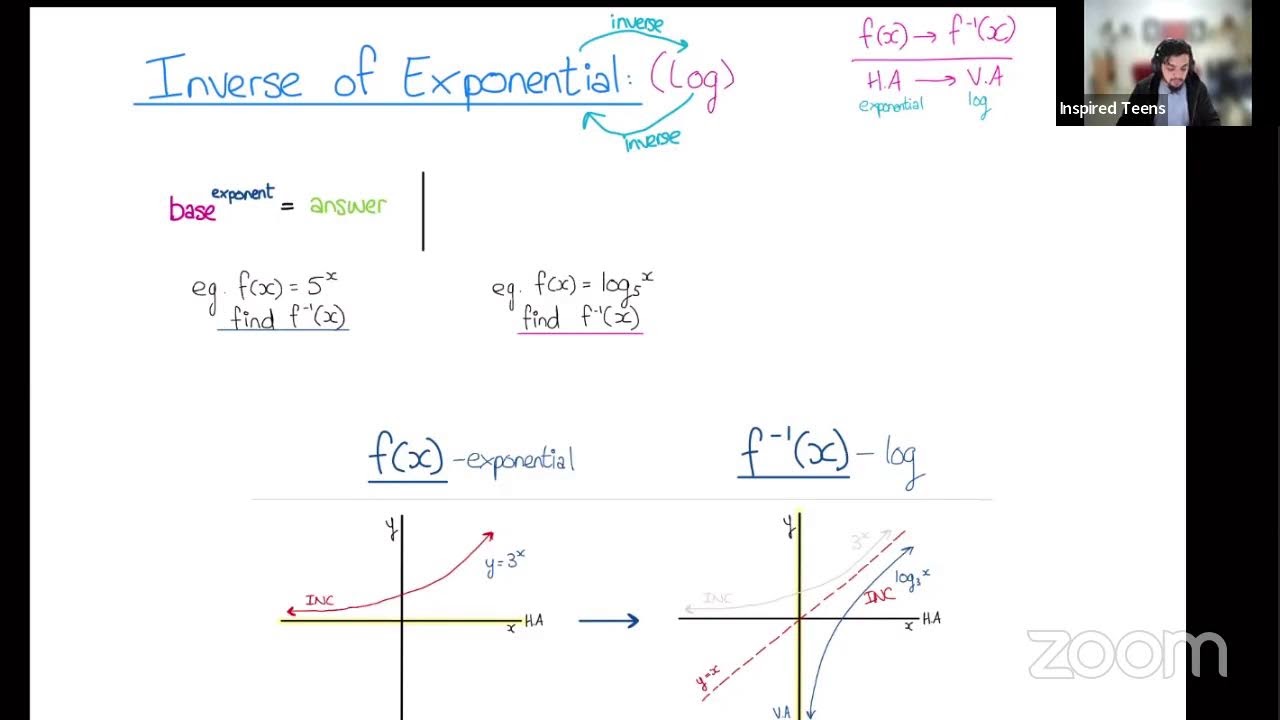 inverse
Inverse of Exponential: (log)
inverse
f(x) → f⁻¹(x)
H.A → V.A
exponential log
Inspired Teens
base^exponent = answer
eg. f(x) = 5ˣ
find f⁻¹(x)
eg. f(x) = log₅ˣ
find f⁻¹(x)
f(x) - exponential
f⁻¹(x) - log
y
y=3ˣ
INC
x H.A
y
3ˣ
INC
log₃ˣ
INC
x H.A
y=x
V.A
zoom